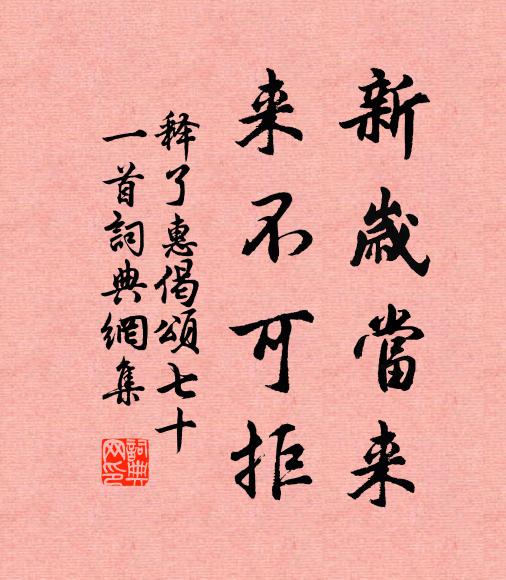 新歲當来
来不可拒
释了惠偈頌七十
一首詞典網集
詞典
网印